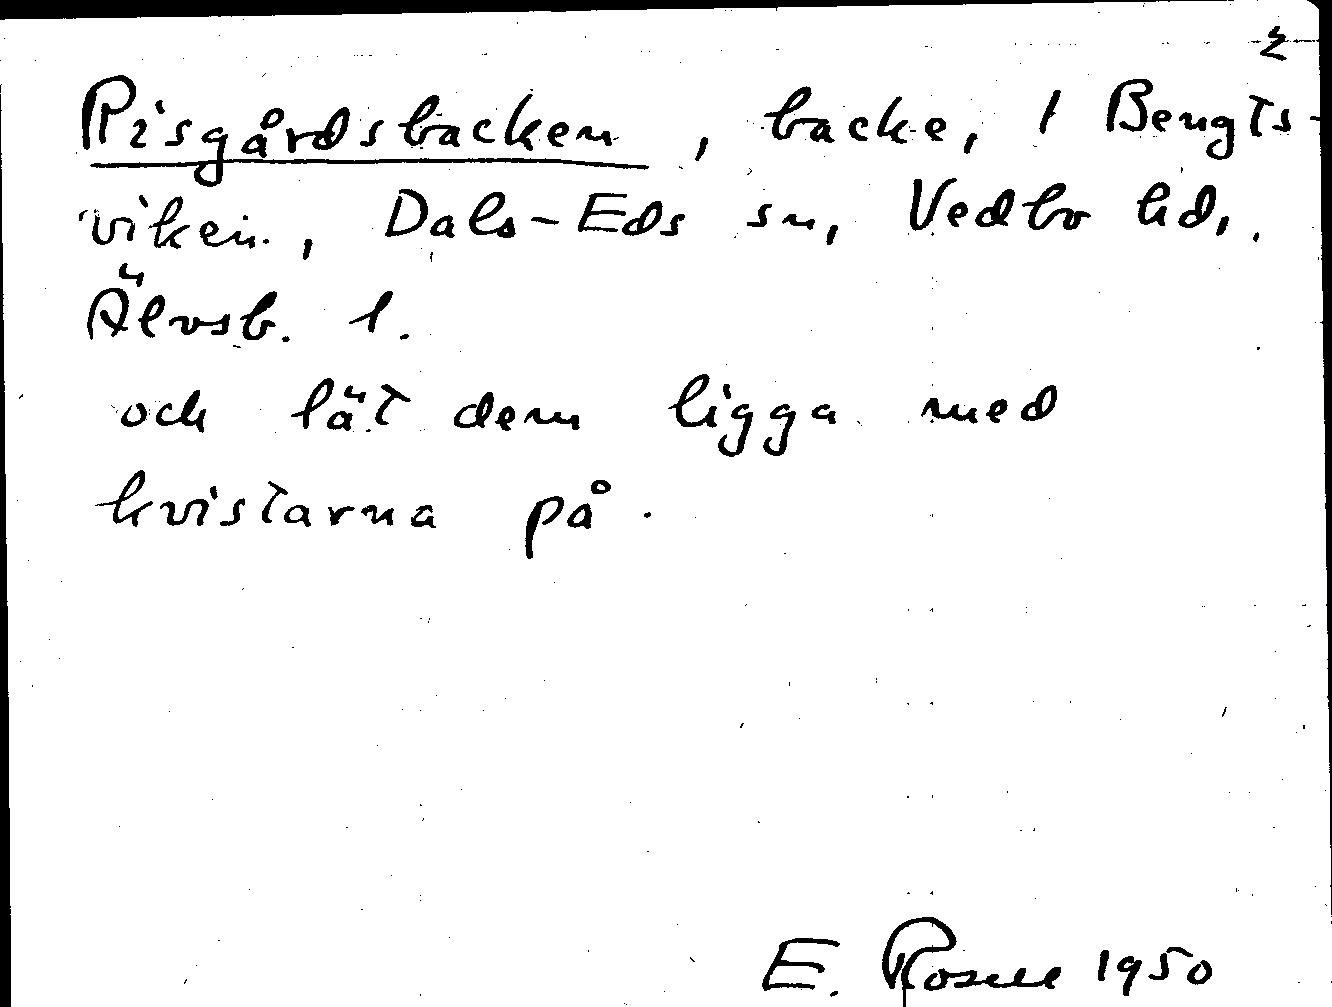 2
Risgårdsbacken, backe, 1 Bengts-
viken, Dals-Eds sn, Vedbo hd,.
Älvsb. l.
och lät dem ligga med
kvistarna på.
E. Rosell 1950